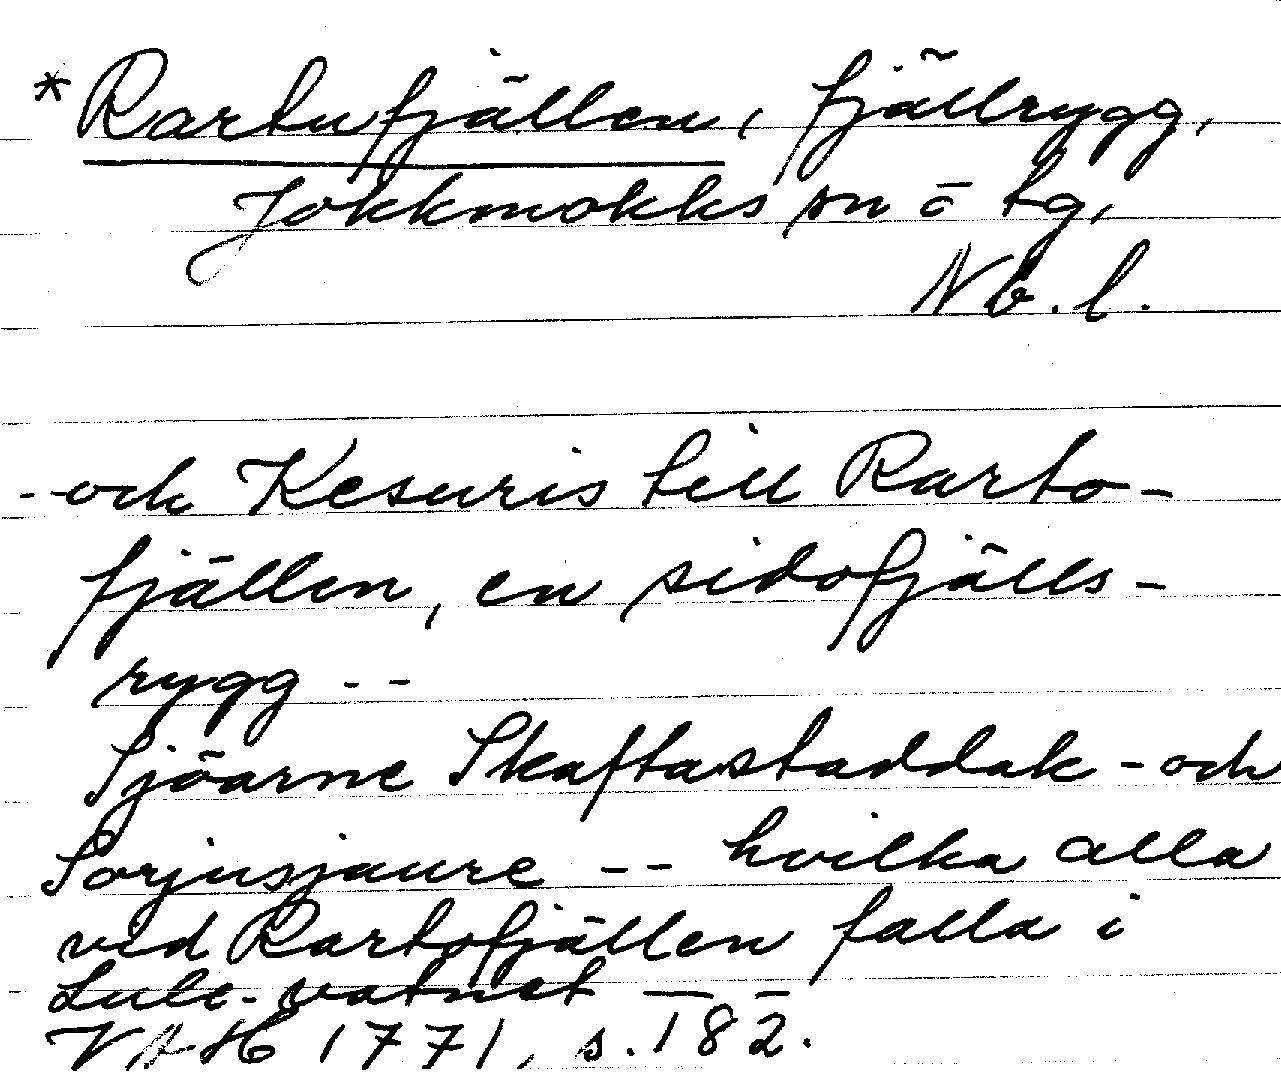 * Rartufjällen, fjällrygg,
Jokkmokks sn o tg,
Nb. l.
--och Kesuris till Rarto-
fjällen, en sidofjälls-
rygg --
Sjöarne Skaftastaddak - och
Sorjusjaure -- hvilka alla
ved Rartofjällen falla i
Lule-vatnet --
VAH 1771, s. 182.